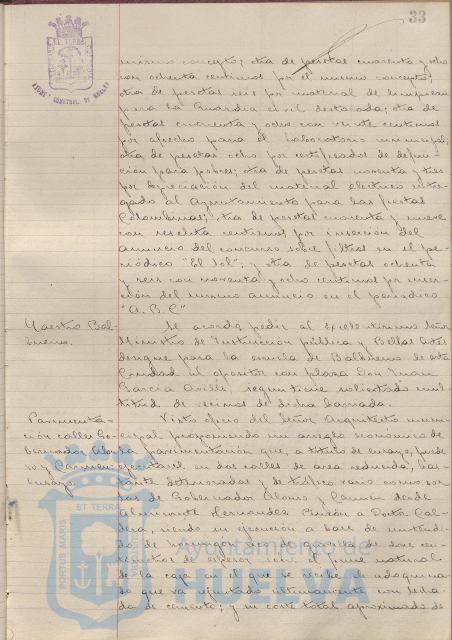 33
mismo concepto; otra de pesetas cuarenta y ocho
con ochenta centimos por el mismo concepto;
otra de pesetas seis por material de limpieza
para la Guardia civil destacada; otra de
pesetas cuarenta y ocho con veinte centimos
por afrecho para el Laboratorio municipal;
otra de pesetas ocho por certificados de defun-
ción para pobres; otra de pesetas noventa y tres
por depreciación del material electrico entre-
gado al Ayuntamiento para las fiestas
Colombinas; otra de pesetas cuarenta y nueve
con sesenta centimos por inserción del
anuncio del concurso sobre filtros en el pe-
riódico "El Sol"; y otra de pesetas ochenta
y seis con noventa y ocho centimos por inser-
ción del mismo anuncio en el periódico
"A.B.C"
Maestro Bal-
buena.
Se acordó pedir al Excelentisimo Señor
Ministro de Instrucción pública y Bellas Artes
designe para la escuela de Balbuena de esta
Ciudad al opositor con plaza Don Juan
García según tiene solicitado mul-
titud de vecinos de dicha barriada.
Pavimenta-
ción calles Go-
bernador Alonso
y Carmen
ensayo
Visto oficio del Señor Arquitecto muni-
cipal proponiendo un arreglo económico de
la pavimentación que, a titulo de ensayo, puede
en dos calles de area reducida, bas-
tante deterioradas y de tráfico raro como son
las de Gobernador Alonso y Carmen desde
Almirante Hernandez Pinzón a Doctor Cal-
dera, siendo su ejecución a base de un tendido
de hormigón de doce cen-
timetros de espesor con el firme natural
de la caja en el que se recibe el adoquina-
do que va ultimamente con lecha-
da de cemento; y su coste total aproximado de
Ayuntamiento de
HUELVA
PORTUS MARIS ET TERRAE